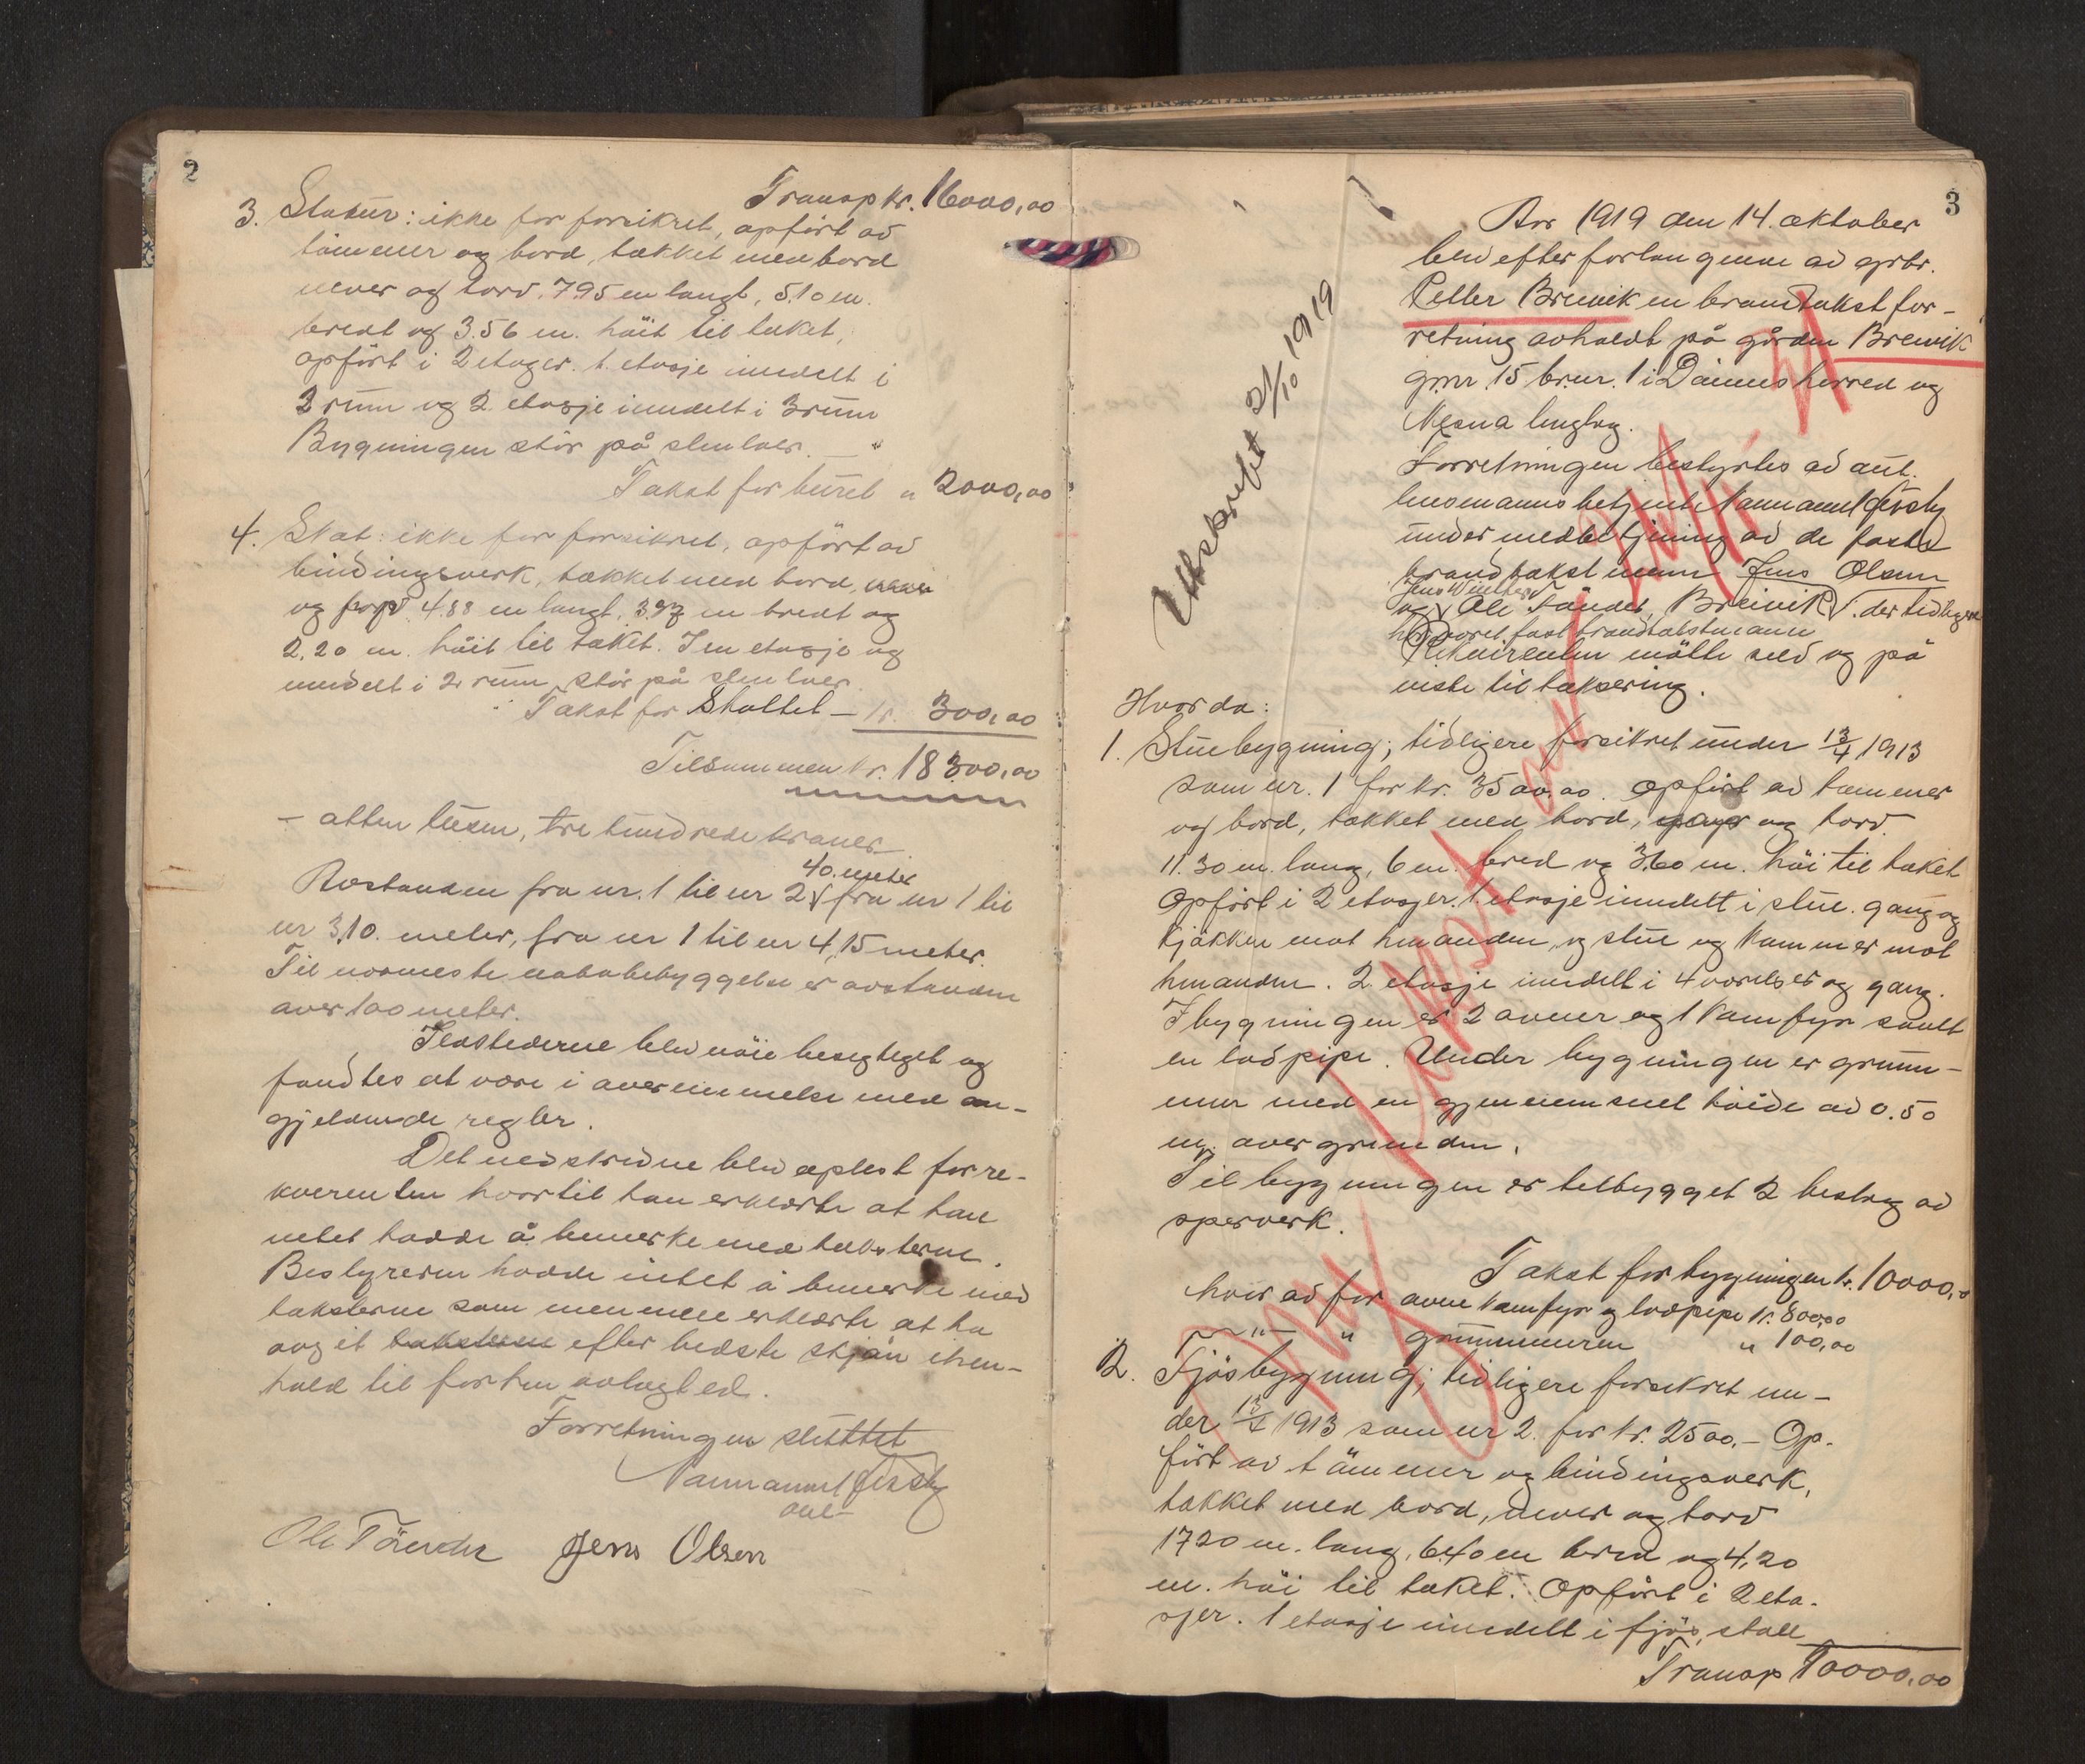 2
Transp kr. 16000,00
3. Stabur: ikke før forsikret, opført av
tømmer og bord, tækket med bord
never og torv. 7.95 m langt, 5.10 m.
bredt og 3.56 m. høit til taket,
opført i 2 etager. 1. etasje inndelt i
2 rum og 2. etasje inndelt i 3 rum
Bygningen står på stenloer.
Takst for buret " 2000,00
4. ikke før forsikret, opført av
bindingsverk, tækket med bord, never
og torv. 4.88 m langt, m bredt og
2.20 m. høit til taket. I en etasje og
inndelt i 2 rum, står på stenloer.
Takst for Skottet – kr. 300,00
Tilsammen kr. 18300,00
– atten tusen, tre hundrede kroner –
40 meter
Avstanden fra nr. 1 til nr 2 fra nr 1 til
nr 3, 10. meter, fra nr 1 til nr 4, 15 meter.
Til nærmeste nabobebyggelse er avstanden
over 100 meter.
Ildstederne blev nøie besigtiget og
fandtes at være i overenemmelse med an-
gjeldende regler.
Det nedskrevne blev oplest for re-
kverenten hvortil han erklærte at han
intet hadde å bemerke med taksterne.
Bestyreren hadde intet å bemerke med
taksterne som mennene erklærte at ha
avgit taksterne efter bedste skjøn ihen-
hold til forhen avlagt ed.
Forretningen sluttet
aut.
Ole Tönder Jens Olsen
3
Utskrevet 21/10 1919
Aar 1919 den 14. oktober
blev efter forlangende av grbr.
Petter Breivik en brandtakstfor-
retning avholdt på gården Breivik
gnr. 15 brnr. 1 i Dønnes herred og
Nesna lensmannslag.
Forretningen bestyrtes av aut.
lensmannsbetjent
under medbetjening av de faste
brandtakstmenn Jens Olsen
og Ole Tönder, Breivik der tidligere
har været fast brandtakstmann
Rekvirenten møtte selv og på
viste til taksering.
Hvorda:
1. Stuebygning; tidligere forsikret under 13/4 1913
som nr. 1 for kr. 3500.00. Opført av tømmer
og bord, tækket med bord, og torv.
11.30 m. lang, 6 m. bred og 3.60 m. høi til taket
Opført i 2 etasjer. 1. etasje inndelt i stue. gang og
kjøkken mot hinanden, og stue og kammer mot
hinanden. 2. etasje inndelt i 4 værelser og gang.
I bygningen er 2 ovner og 1 komfyr samt
en lodpipe. Under bygningen er grunn-
mur med en gjennemsnet høide av 0.50
m. over grunden.
Til bygningen er tilbygget 2 beslag av
sperverk.
Takst for bygningen kr. 10000,00
hvorav for ovne komfyr og lodpipe kr. 800,00
– " – " grunnmuren " 100,00
2. Fjøsbygning; tidligere forsikret un-
der 13/4 1913 som nr 2. for kr. 2500.– Op-
ført av tømmer og bindingsverk,
tækket med bord, never og torv
17.20 m. lang, 6.40 m bred og 4,20
m. høi til taket. Opført i 2 eta-
sjer. 1 etasje inndelt i fjøs, stall
Transp 10000,00